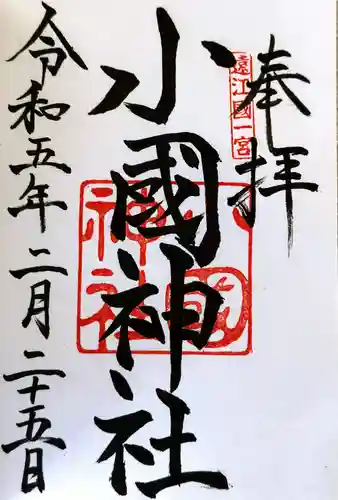 奉拝
遠江國一宮
小國神社
小國神社
令和五年二月二十五日